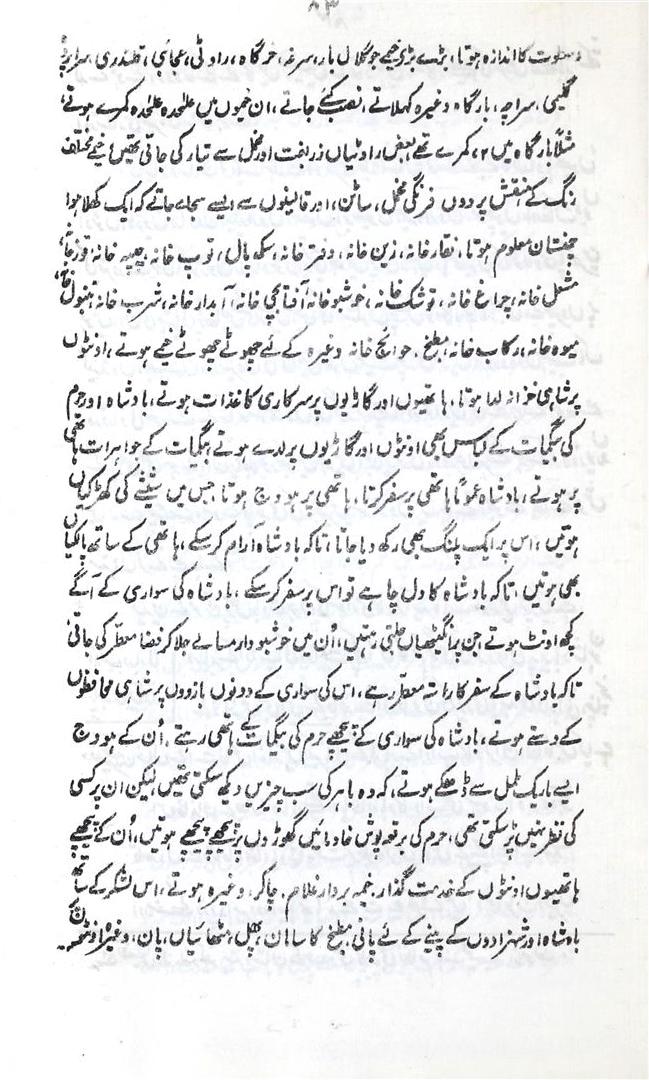 ۸۳
و سطوت کا اندازہ ہوتا، بڑے بڑے خیمے جو گلال بار، سرغہ، خرگاہ، راوٹی، عجائبی، قلندری، سراپردہ
گلیمی، سراچہ، بارگاہ وغیرہ کہلاتے، نصب کئے جاتے، ان خیموں میں علٰحدہ علٰحدہ کمرے ہوتے،
مثلاً بارگاہ میں ۷۲ کمرے تھے، بعض راوٹیاں زربفت اور مخمل سے تیار کی جاتی تھیں، خیمے مختلف
رنگ کے منقش پردوں فرنگی مخمل، ساٹن، اور قالینوں سے ایسے سجائے جاتے کہ ایک کھلا ہوا
چمنستان معلوم ہوتا، نقارخانہ، زین خانہ، دفتر خانہ، سکھ پال، توپ خانہ، چیپہ خانہ، قورخانہ،
مشعل خانہ، چراغ خانہ، توشک خانہ، خوشبو خانہ، آفتابچی خانہ، آبدار خانہ، شربت خانہ، تنبول خانہ،
میوہ خانہ، رکاب خانہ، مطبخ، حوائج خانہ وغیرہ کے لئے چھوٹے چھوٹے خیمے ہوتے، اونٹوں
پر شاہی خزانہ لدا ہوتا، ہاتھیوں اور گاڑیوں پر سرکاری کاغذات ہوتے، بادشاہ اور حرم
کی بیگمات کے لباس بھی اونٹوں اور گاڑیوں پر لدے ہوتے، بیگمات کے جواہرات ہاتھی
پر ہوتے، بادشاہ عموماً ہاتھی پر سفر کرتا، ہاتھی پر ہودج ہوتا، جس میں شیشے کی کھڑکیاں
ہوتیں، اس پر ایک پلنگ بھی رکھ دیا جاتا، تاکہ بادشاہ آرام کر سکے، ہاتھی کے ساتھ پالکیاں
بھی ہوتیں، تاکہ بادشاہ کا دل چاہے تو اس پر سفر کر سکے، بادشاہ کی سواری کے آگے
کچھ اونٹ ہوتے جن پر انگیٹھیاں جلتی رہتیں، اُن میں خوشبودار مسالے جلا کر فضا معطّر کی جاتی
تاکہ بادشاہ کے سفر کا راستہ معطّر رہے، اس کی سواری کے دونوں بازووں پر شاہی محافظوں
کے دستے ہوتے، بادشاہ کی سواری کے پیچھے حرم کی بیگمات کے ہاتھی رہتے، اُن کے ہودج
ایسے باریک ململ سے ڈھکے ہوتے، کہ وہ باہر کی سب چیزیں دیکھ سکتی تھیں لیکن ان پر کسی
کی نظر نہیں پڑ سکتی تھی، حرم کی برقعہ پوش خادمائیں گھوڑوں پر پیچھے پیچھے ہوتیں، اُن کے پیچھے
ہاتھیوں اونٹوں کے خدمت گذار، خیمہ بردار غلام، چاکر، وغیرہ ہوتے، اس لشکر کے ساتھ
بادشاہ اور شہزادوں کے پینے کے لئے پانی، مطبخ کا سامان، پھل، مٹھائیاں، پان، وغیرہ اونٹوں